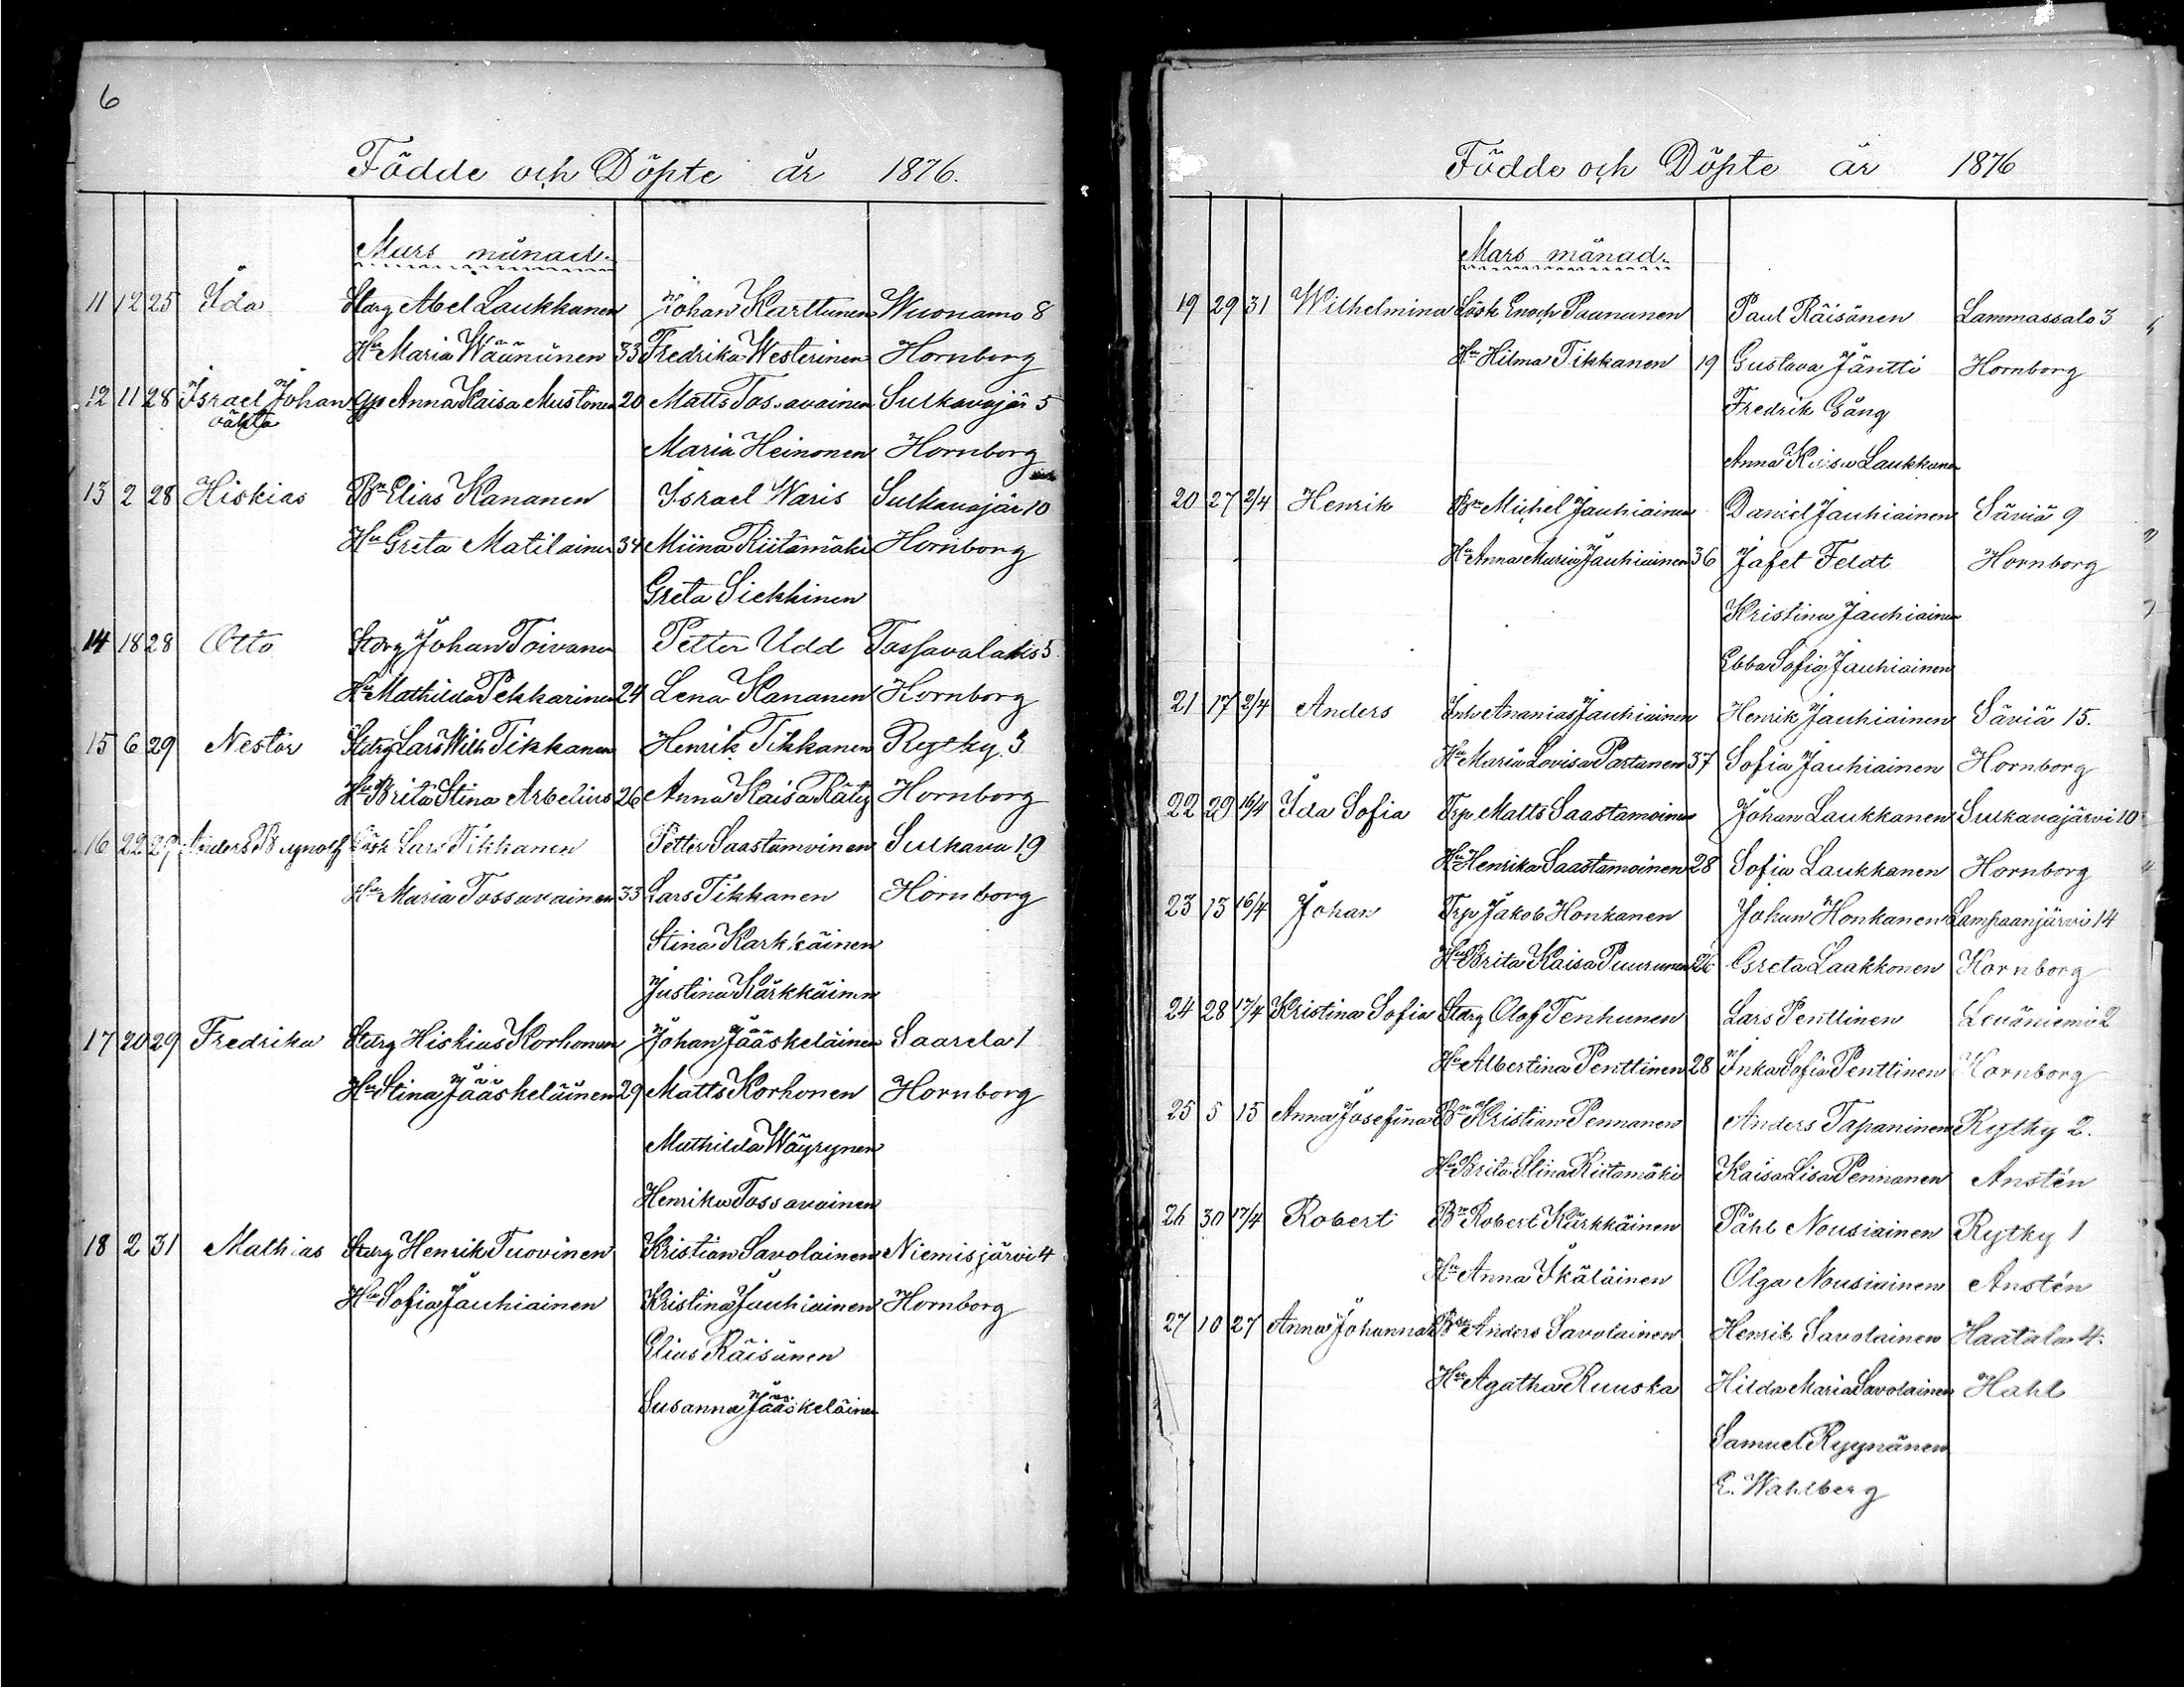 6
Födde och Döpte år 1876.
Mars månad.
11 12 25 Ida Starg Abel Laukkanen Johan Karttunen Wuonamo 8
Hu Maria Wäänänen 33 Fredrika Westerinen Hornborg
12 11 28 Israel Johan Gp Anna Kaisa Mustonen 20 Matts Tossavainen Sulkavajär 5
oäkta Maria Heinonen Hornborg
13 2 28 Hiskias Bn Elias Kananen Israel Waris Sulkavajär 10
Hu Greta Matilainen 34 Miina Riitamäki Hornborg
Greta Siekkinen
14 18 28 Otto Starg Johan Toivanen Petter Udd Tossavalaks 5
Hu Mathilda Pekkarinen 24 Lena Kananen Hornborg
15 6 29 Nestor Starg Lars Wilh Tikkanen Henrik Tikkanen Rytky 3
Hu Brita Stina Arbelius 26 Anna Kaisa Räty Hornborg
16 22 29 Anders Lösk Lars Tikkanen Petter Saastamoinen Sulkava 19
Hu Maria Tossavainen 33 Lars Tikkanen Hornborg
Stina Karkkäinen
Justina Kärkkäinen
17 20 29 Fredrika Starg Hiskias Korhonen Johan Jääskeläinen Saarela 1
Hu Stina Jääskeläinen 29 Matts Korhonen Hornborg
Mathilda Wäyrynen
Henrika Tossavainen
18 2 31 Mathias Starg Henrik Tuovinen Kristian Savolainen Niemisjärvi 4
Hu Sofia Jauhiainen Kristina Jauhiainen Hornborg
Elias Räisänen
Susanna Jääskeläinen
Födde och Döpte år 1876
Mars månad.
19 29 31 Wilhelmina Lösk Enoch Paananen Paul Räisänen Lammassalo 3
Hu Hilma Tikkanen 19 Gustava Jäntti Hornborg
Fredrik Gång
Anna Kaisa Laukkanen
20 27 2/4 Henrik Bn Michel Jauhiainen Daniel Jauhiainen Säviä 9
Hu Anna Maria Jauhiainen 36 Jafet Feldt Hornborg
Kristina Jauhiainen
Ebba Sofia Jauhiainen
21 17 2/4 Anders Inh Ananias Jauhiainen Henrik Jauhiainen Säviä 15.
Hu Maria Lovisa Partanen 37 Sofia Jauhiainen Hornborg
22 29 16/4 Ida Sofia Trp Matts Saastamoinen Johan Laukkanen Sulkavajärvi 10
Hu Henrika Saastamoinen 28 Sofia Laukkanen Hornborg
23 13 16/4 Johan Trp Jakob Honkanen Johan Honkanen Lampaanjärvi 14
Hu Brita Kaisa Puurunen 26 Greta Laakkonen Hornborg
24 28 17/4 Kristina Sofia Starg Olof Tenhunen Lars Penttinen Leväniemi 2
Hu Albertina Penttinen 28 Inka Sofia Penttinen Hornborg
25 5 15 Anna Josefina Bn Kristian Pennanen Anders Tapaninen Rytky 2.
Hu Brita Stina Riitamäki Kaisa Lisa Pennanen Anstén
26 30 17/4 Robert Bn Robert Kärkkäinen Påhl Nousiainen Rytky 1
Hu Anna Ikäläinen Olga Nousiainen Anstén
27 10 27 Anna Johanna Bn Anders Savolainen Henrik Savolainen Haatala 4.
Hu Agatha Ruuska Hilda Maria Savolainen Hahl
Samuel Ryynänen
E. Wahlberg